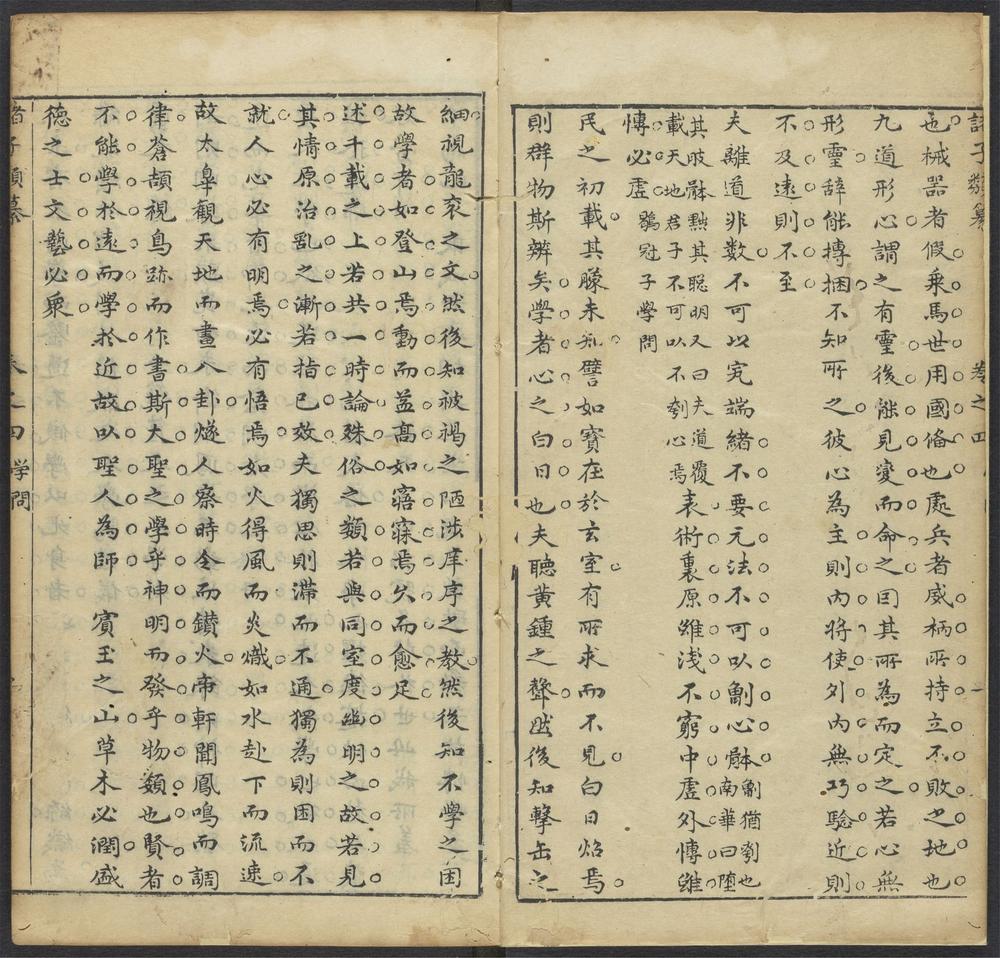 諸子類纂 卷之四
也械器者假乘馬世用國俻也處兵者威柄所持立不敗之地也
九道形心謂之有靈後能見變而命之因其所為而定之若心無
形靈辞能搏捆不知所之彼心為主則內將使外內無巧驗近則
不及遠則不至
夫離道非數不可以䆒端緒不要元法不可以劀心體劀猶刳也南華曰墮
其肢體黜其聦明又曰夫道覆載天地君子不可以不刳心焉表術裏原雖淺不窮中虛外愽雖
愽必虛鶡冠子學問
民之初載其矇未知譬如寳在於玄室有所求而不見白日炤焉
則群物斯辨矣學者心之白日也夫聽黃鍾之聲然後知擊缶之
細視龍衮之文然後知被褐之陋涉庠序之教然後知不學之困
故學者如登山焉動而益髙如寤寐焉久而愈足
述千載之上若共一時論殊俗之類若與同室度幽明之故若見
其情原治亂之漸若指已效夫獨思則滯而不通獨為則困而不
就人心必有明焉必有悟焉如火得風而炎熾如水赴下而流速
故太皥觀天地而畫八卦燧人察時令而鑚火帝軒聞鳳鳴而調
律蒼頡視鳥跡而作書斯大聖之學乎神明而發乎物類也賢者
不能學於遠而學於近故以聖人為師 賔玉之山草木必潤盛
徳之士文藝必衆
諸子類纂 卷之四 學問